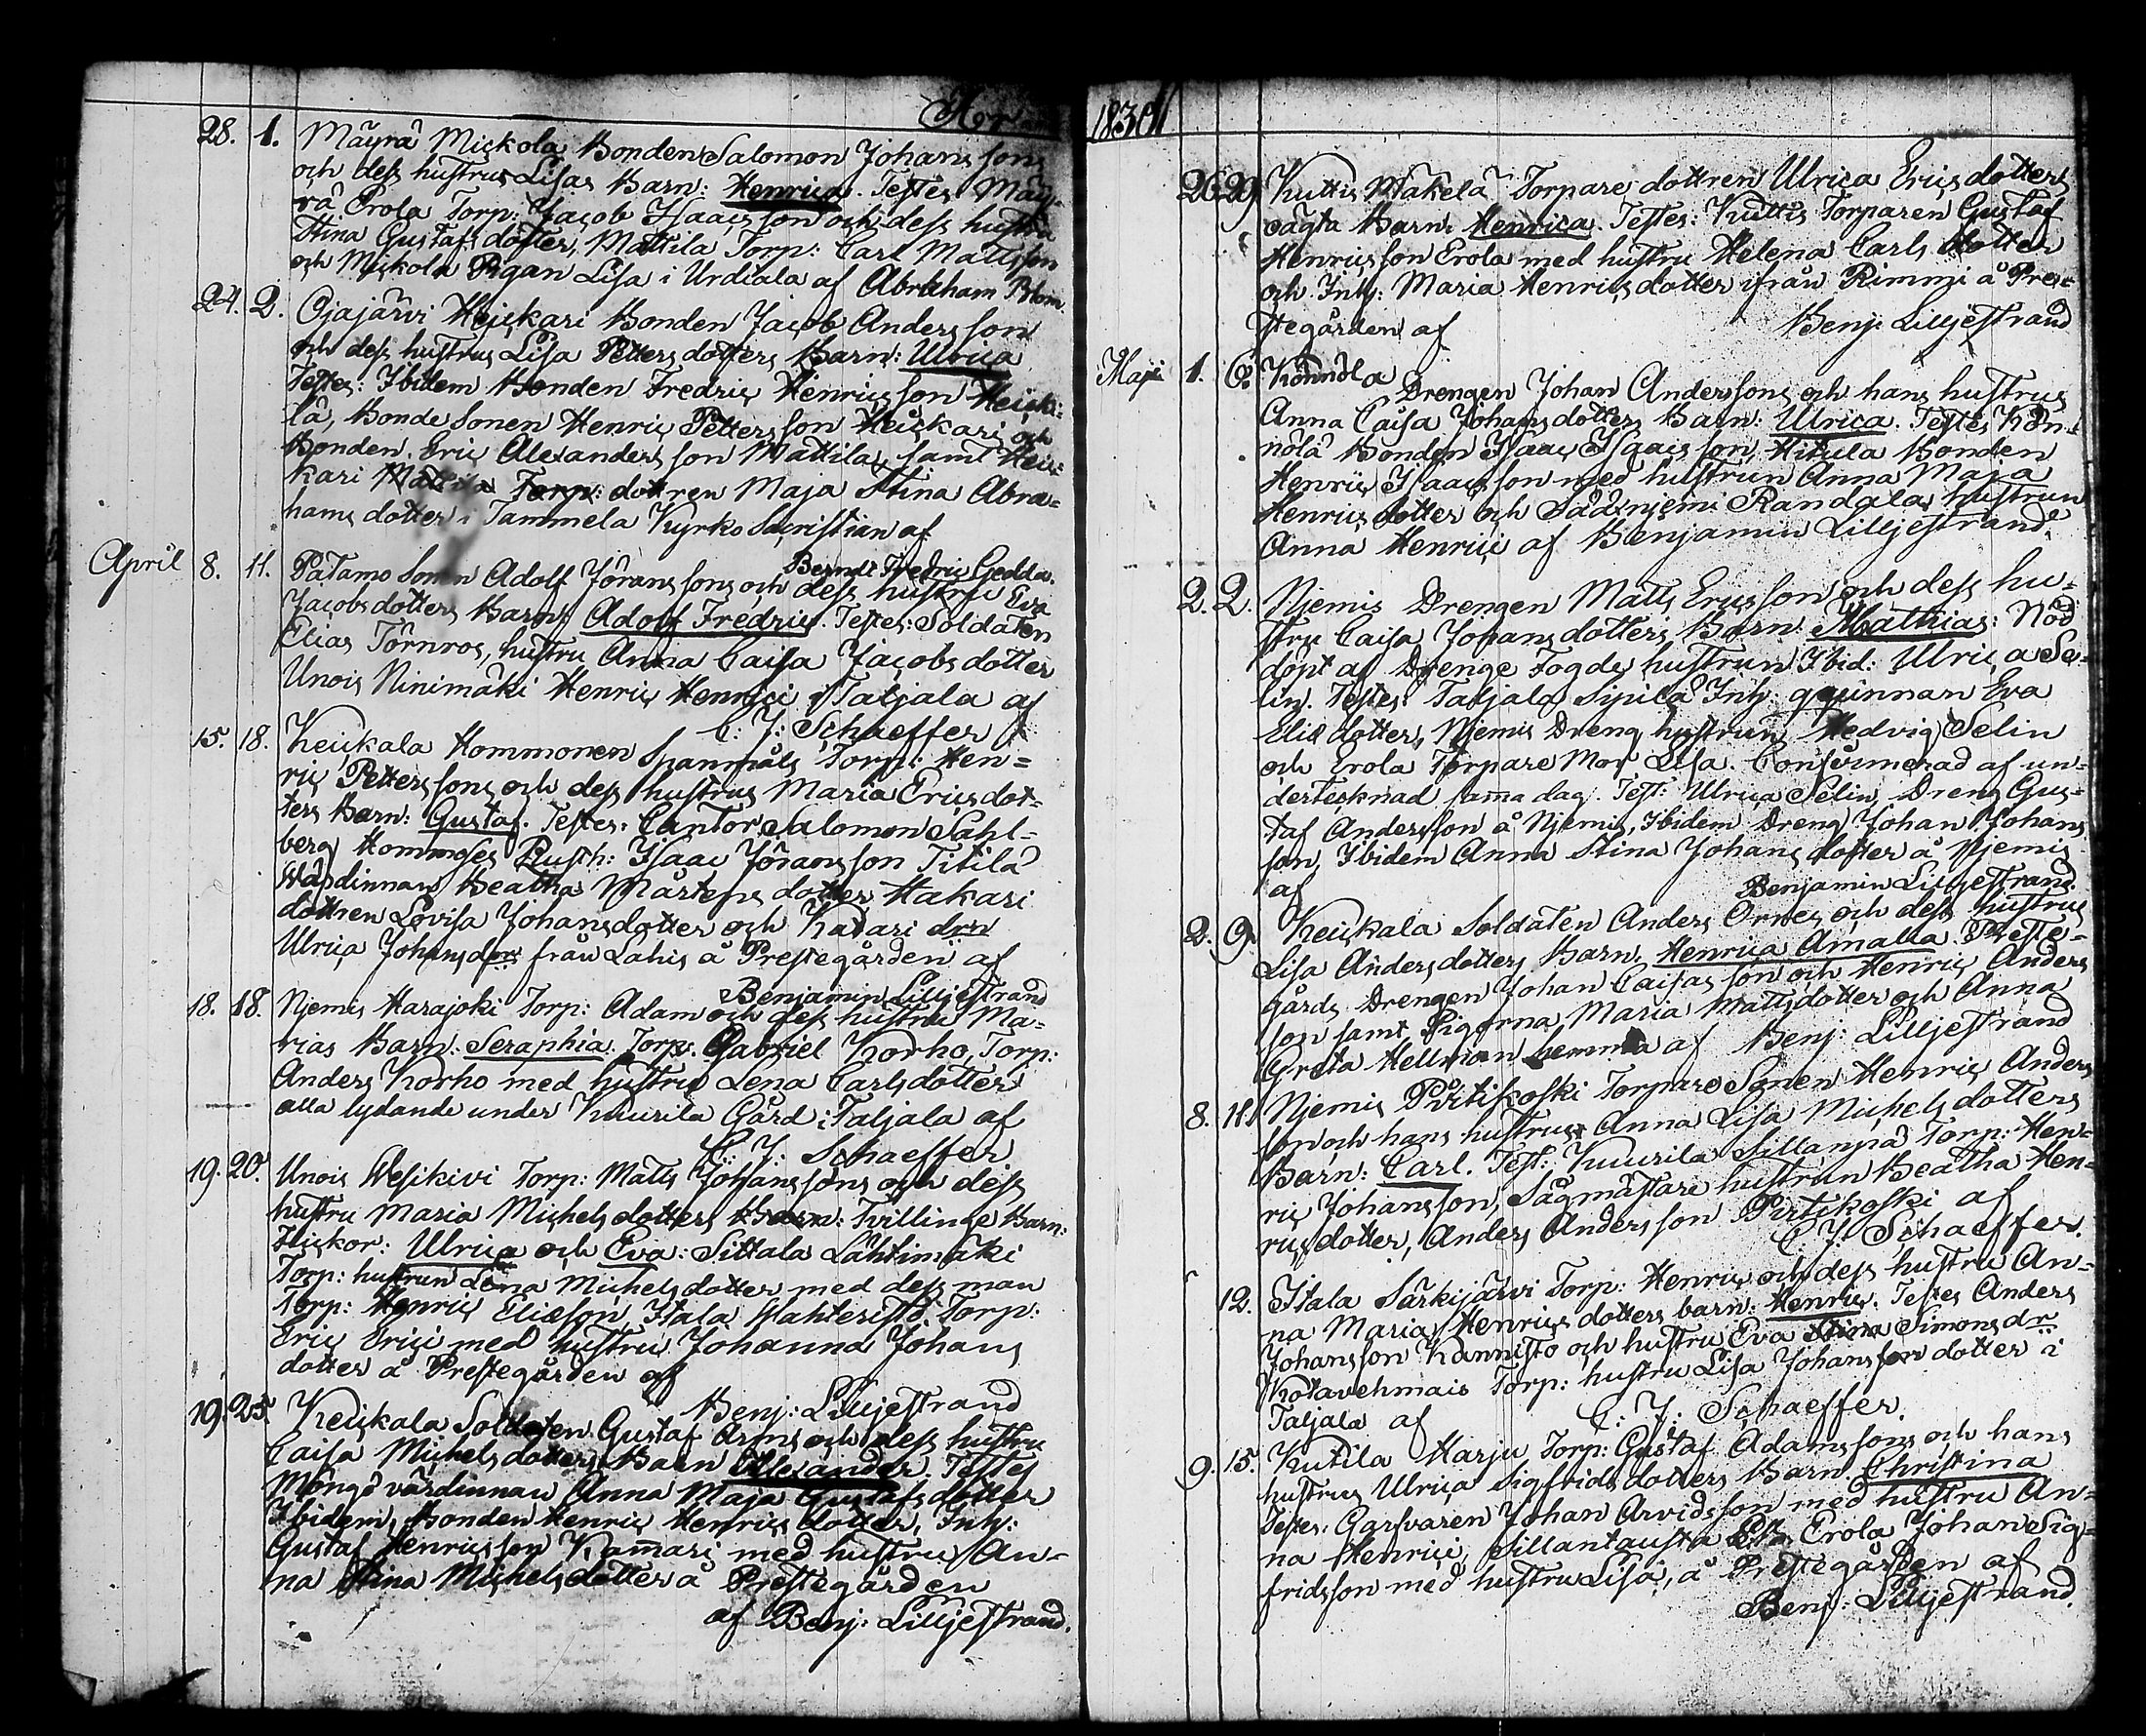 1830
28. 1. Mäyrä Mickola Bonden Salomon Johanssons
och dess hustrus Lisas Barn: Henrica. Testes Mäy-
rä Erola Torp: Jacob Isaacsson och dess hustru
Stina Gustafsdotter, Mattila Torp: Carl Mattsson
och Mickola Pigan Lisa i Urdiala af Abraham Blom
24. 2. Ojajärvi Heickari Bonden Jacob Andersson
och dess hustrus Lisa Pettersdotters Barn: Ulrica
Testes: Ibidem Bonden Fredric Henricsson Heick:
lä, Bonde Sonen Henric Pettersson Heickari och
Bonden Eric Alexandersson Mattila, samt Heic:
kari Torp: dottren Maja Stina Abra-
hamsdotter i Tammela Kyrko Sacristian af
Berndt Fredric Gedda.
April 8. 11. Patamo Sonen Adolf Jöranssons och dess hustru Eva
Jacobsdotters Barn: Adolf Fredric. Testes: Soldaten
Elias Törnros, hustru Anna Caisa Jacobsdotter
Unois Ninimäki Henric Henrici i Taljala af
C: J: Schaeffer
15. 18. Keickala Hommonen Spanmåls Torp: Hen=
ric Petterssons och dess hustrus Maria Ericsdot-
ters Barn: Gustaf. Testes: Cantor Salomon Sahl-
berg Hommoses Rusth: Isaac Jöransson Titilä
Wärdinnan Beatha Mårtensdotter Hakari
dottren Lovisa Johansdotter och Katari drn
Ulrica Johansdotr från Lahis å Prestegården af
Benjamin Lilljestrand
18. 18. Njemis Harajoki Torp: Adam och dess hustru Ma-
rias Barn: Seraphia. Torp. Gabriel Korho, Torp:
Anders Korho med hustru Lena Carlsdotter
alla lydande under Kuurila Gård i Taljala af
C: J: Schaeffer
19. 20. Unois Wesikivi Torp: Matts Johanssons och dess
hustru Maria Michelsdotters Barn: Tvillinge Barn:
Flickor: Ulrica och Eva: Sittala Lähtimäki
Torp: hustrun Lena Michelsdotter med dess man
Torp: Henric Eliesson, Itala Wahteristö Torp:
Eric Erici med hustru Johanna Johans
dotter å Prestegården af
Benj: Lilljestrand
19. 25. Keickala Soldaten Gustaf Arms och dess hustru
Caisa Michelsdotters Barn Alexander. Testes
Möngö värdinnan Anna Maja Gustafsdotter
Ibidem, Bonden Henric Henricsdotter, Inh:
Gustaf Henricsson Kamari med hustru An-
na Stina Michelsdotter å Prestegården
af Benj: Lilljestrand.
26. 29. Kuttis Mäkelä Torpare dottren Ulrica Ericsdotters
oägta Barn: Henrica. Testes: Kuttis Torparen Gustaf
Henricsson Erola med hustru Helena Carlsdotter
och Inh: Maria Henricsdotter ifrån Rimmi å Pres-
tegården af Benj: Lilljestrand
Maji 1. 6. Könnölä
Drengen Johan Anderssons och hans hustrus
Anna Caisa Johansdotters Barn: Ulrica. Testes Kön-
nölä Bonden Isaac Isaacsson, Hitula Bonden
Henric Isaacsson med hustrun Anna Maja
Henricsdotter och Sääxniemi Randala hustrun
Anna Henrici af Benjamin Lilljestrand.
2. 2. Njemis Drengen Matts Ericsson och dess hu-
stru Caisa Johansdotters Barn: Mathias: Nöd
döpt af Drenge Fogde hustrun Ibid: Ulrica Se-
lin. Testes: Taljala Sipilä Inh: qvinnan Eva
Elie dotter, Njemis Dreng hustrun Hedvig Selin
och Erola Torpare Mor Lisa. Confirmerad af un-
dertecknad samma dag. Test: Ulrica Selin Dreng Gus-
taf Andersson å Njemis, Ibidem Dreng Johan Johans
son, Ibidem Anna Stina Johansdotter å Njemis
af Benjamin Lilljestrand.
2. 9. Keickala Soldaten Anders Ornes och dess hustrus
Lisa Andersdotters Barn: Henrica Amalia. Preste-
gårds Drengen Johan Caisasson och Henric Anders
son samt Pigorna Maria Mattsdotter och Anna
Greta Hellman hemma af Benj: Lilljestrand
8. 11. Njemis Pirtikoski Torpare Sonen Henric Anders
son och hans hustrus Anna Lisa Michelsdotters
Barn: Carl. Test: Kuurila Sillanpä Torp: Hen-
ric Johansson, Sågmästare hustrun Beatha Hen-
ricsdotter, Anders Andersson Pirtikoski af
C: J: Schaeffer.
12. Itala Särkijärvi Torp: Henric och dess hustru An-
na Maria Henricsdotters barn: Henric. Testes Anders
Johansson Kannisto och hustru Eva Stina Simonsdr
Kotavehmais Torp: hustru Lisa Johanssondotter i
Taljala af C: J: Schaeffer.
9. 15. Kutila Harju Torp: Gustaf Adamssons och hans
hustrus Ulrica Sigfridsdotters Barn Christina
Testes: Garfvaren Johan Arvidsson med hustru An-
na Henrici, Sillantausta Erola Johan Sig-
fridsson med hustru Lisa, å Prestegården af
Benj: Lilljestrand.